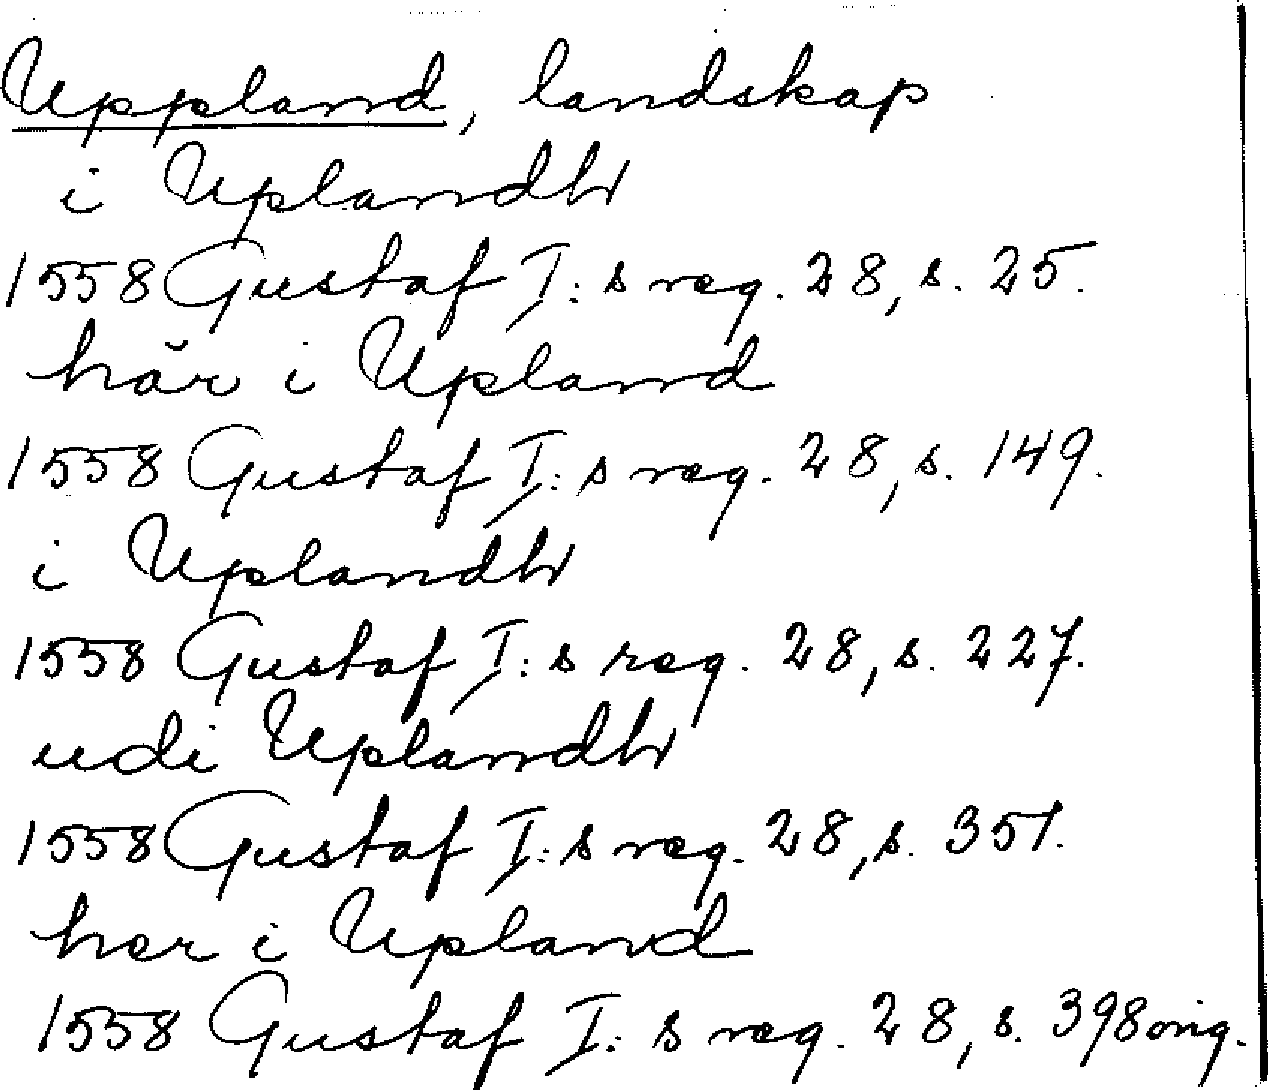 Uppland, landskap
i Uplandh
1558 Gustaf I: s reg. 28, s. 25.
här i Upland
1558 Gustaf I: s reg. 28, s. 149.
i Uplandh
1558 Gustaf I: s reg. 28, s. 227.
udi Uplandh
1558 Gustaf I: s reg. 28, s. 351.
her i Upland
1558 Gustaf I: s reg. 28, s. 398 orig.